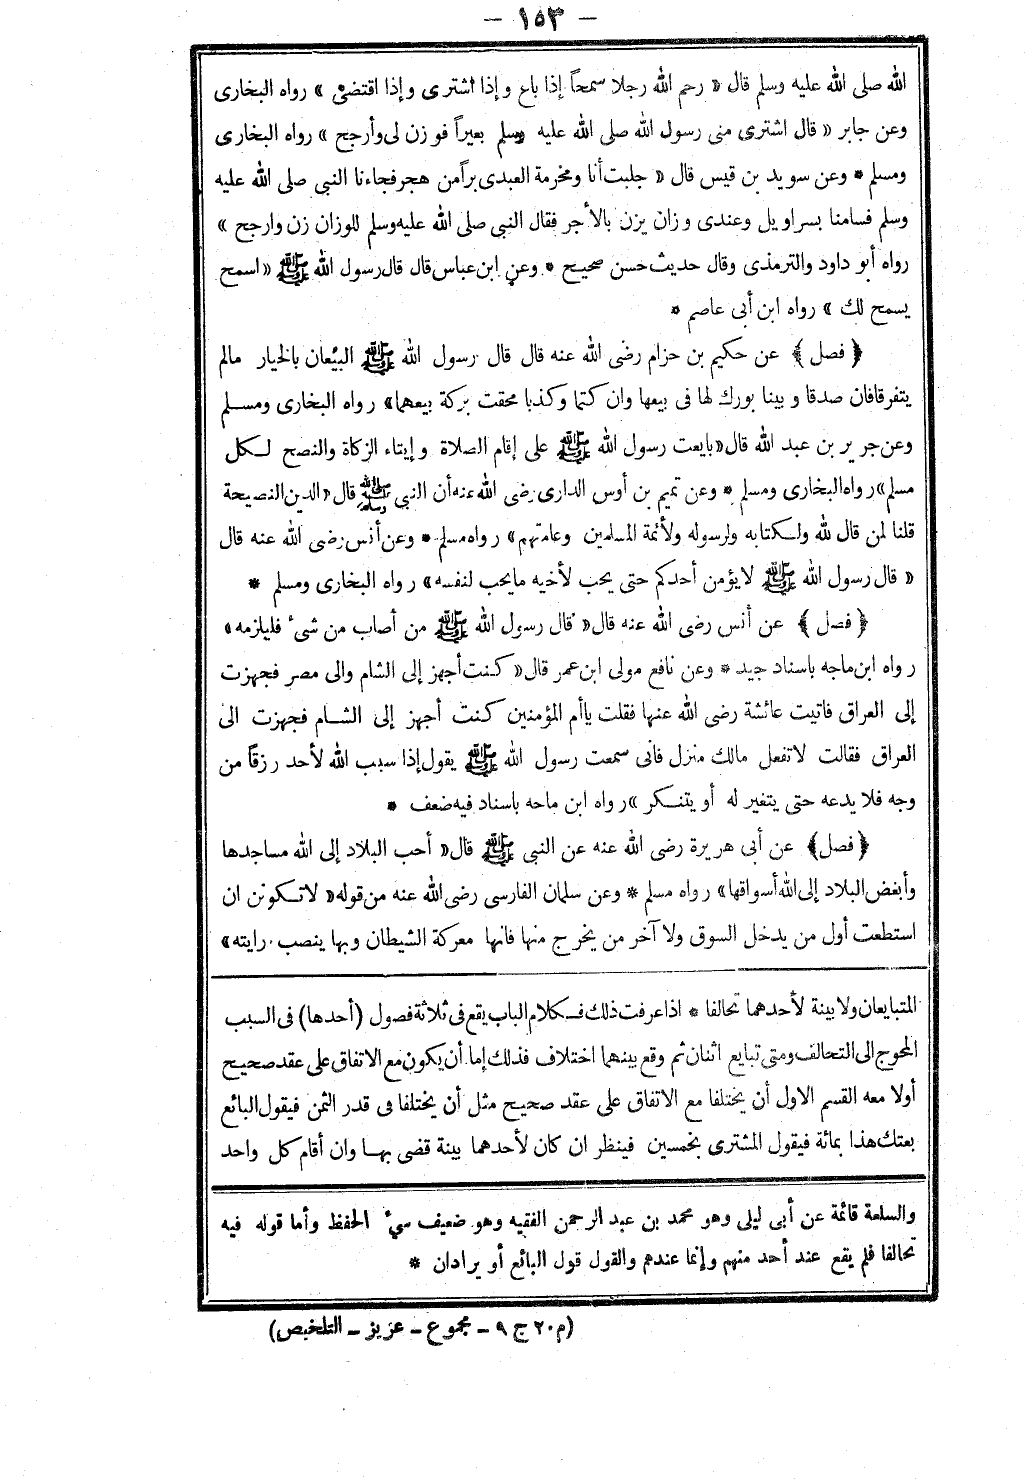 — ١٥٣ —
الله صلى الله عليه وسلم قال « رحم الله رجلا سمحاً إذا باع وإذا اشترى وإذا اقتضى » رواه البخارى
وعن جابر « قال اشترى منى رسول الله صلى الله عليه وسلم بعيراً فوزن لى وأرجح » رواه البخارى
ومسلم * وعن سويد بن قيس قال « جلبت أنا ومخرمة العبدى براً من هجر فجاءنا النبى صلى الله عليه
وسلم فسامنا بسراويل وعندى وزان يزن بالأجر فقال النبى صلى الله عليه وسلم للوزان زن وارجح »
رواه أبو داود والترمذى وقال حديث حسن صحيح * وعن ابن عباس قال قال رسول الله ﷺ « اسمح
يسمح لك » رواه ابن أبى عاصم *
﴿ فصل ﴾ عن حكيم بن حزام رضى الله عنه قال قال رسول الله ﷺ البيّعان بالخيار مالم
يتفرقا فان صدقا وبينا بورك لهما فى بيعهما وان كتما وكذبا محقت بركة بيعهما » رواه البخارى ومسلم
وعن جرير بن عبد الله قال « بايعت رسول الله ﷺ على إقام الصلاة وإيتاء الزكاة والنصح لكل
مسلم » رواه البخارى ومسلم * وعن تميم بن أوس الدارى رضى الله عنه أن النبى ﷺ قال « الدين النصيحة
قلنا لمن قال لله ولكتابه ولرسوله ولأئمة المسلمين وعامتهم » رواه مسلم * وعن أنس رضى الله عنه قال
« قال رسول الله ﷺ لا يؤمن أحدكم حتى يحب لأخيه ما يحب لنفسه » رواه البخارى ومسلم *
﴿ فصل ﴾ عن أنس رضى الله عنه قال « قال رسول الله ﷺ من أصاب من شىء فليلزمه »
رواه ابن ماجه باسناد جيد * وعن نافع مولى ابن عمر قال « كنت أجهز إلى الشام والى مصر فجهزت
إلى العراق فاتيت عائشة رضى الله عنها فقلت ياأم المؤمنين كنت أجهز إلى الشام فجهزت الى
العراق فقالت لا تفعل مالك منزل فانى سمعت رسول الله ﷺ يقول إذا سبب الله لأحد رزقاً من
وجه فلا يدعه حتى يتغير له أو يتنكر » رواه ابن ماجه باسناد فيه ضعف *
﴿ فصل ﴾ عن أبى هريرة رضى الله عنه عن النبى ﷺ قال « أحب البلاد إلى الله مساجدها
وأبغض البلاد إلى الله أسواقها » رواه مسلم * وعن سلمان الفارسى رضى الله عنه من قوله « لا تكونن ان
استطعت أول من يدخل السوق ولا آخر من يخرج منها فانها معركة الشيطان وبها ينصب رايته »
المتبايعان ولا بينة لأحدهما تحالفا * اذا عرفت ذلك فكلام الباب يقع فى ثلاثة فصول (أحدها) فى السبب
المحوج الى التحالف ومتى تبايع اثنان ثم وقع بينهما اختلاف فذلك إما أن يكون مع الاتفاق على عقد صحيح
أولا معه القسم الاول أن يختلفا مع الاتفاق على عقد صحيح مثل أن يختلفا فى قدر الثمن فيقول البائع
بعتك هذا بمائة فيقول المشترى بخمسين فينظر ان كان لأحدهما بينة قضى بها وان أقام كل واحد
والسلعة قائمة عن أبى ليلى وهو محمد بن عبد الرحمن الفقيه وهو ضعيف سيء الحفظ وأما قوله فيه
تحالفا فلم يقع عند أحد منهم وإنما عندهم والقول قول البائع أو يرادان *
(م ٢٠ ج ٩ – مجموع – عزيز – التلخيص)